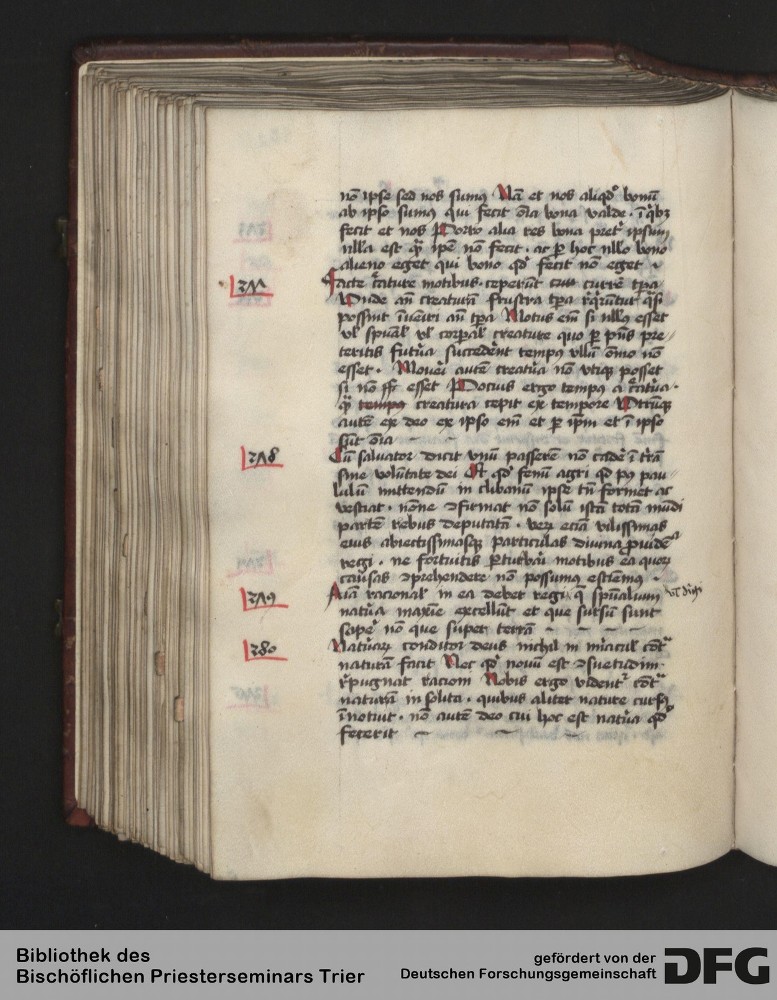 nō ipse sed nos sumꝰ Nā et nos aliqd' bonū
ab ipso sumꝰ qui fecit oīa bona valde · ī qͥbꝫ
fecit et nos Porro alia res bona pret' ipsum
nlla est qᷓ ipē nō fecit · ac ꝑ hoc nllo bono
alieno eget qui bono qd' fecit nō eget ·
277
facte creature motibus ceperūt curre' tꝑa
Vnde an̄ creaturā frustra tꝑa rqͥrūtur qͣsi
possint īueīri an̄ tꝑa Motus em̄ si nllꝰ esset
vl' spūal' vl' corꝑal' creature quo ꝑ pn̄s pre//
teritis futura succederent tempꝰ vllū om̄o nō
esset · Moueri autē creatura nō vtiqꝫ posset
si nō esset Pocius ergo tempꝰ a creatura ·
qᷓ creatura cepit ex tempore Vtrūqꝫ
autē ex deo ex ipso em̄ et ꝑ ip̄m et ī ipso
sūt oīa
278
Cū saluator dicit vnū passerē nō cade' ī trā
sine volūtate dei Et qd' fenū agri qd' pꝰ pau//
lulū mittendū in clibanū ipse tn̄ formet ac
vestiat · nōne ꝯfirmat nō solū istā totā mūdi
partē rebus deputatā · veꝝ eciā vilissimas
eius abiectissimasqꝫ particulas diuina ꝓuidē
regi · ne fortuitis ꝑturbari motibus ea quoꝝ
causas ꝯprehendere nō possumꝰ estiemꝰ ·
279
Aīa racional' in ea debet regi qᷓ spūalium
natura maxīe excellūt et que sursū sunt
sape' nō que super terrā
280
Naturaꝝ conditor deus nichil in miracul' cōtᷓ
naturā facit Nec qd' nouū est ꝯsuetudīni
repugnat raciōni Nobis ergo vident' cōtᷓ
naturā insoliti · quibus aliter nature cursꝰ
īnotuit · nō autē deo cui hoc est natura qd'
fecerit
Bibliothek des
Bischöflichen Priesterseminars Trier
gefördert von der
Deutschen Forschungsgemeinschaft
DFG